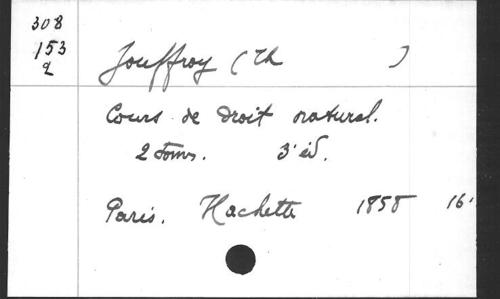 308
153
2
Jouffroy (Th )
Cours de Droit natural.
2 toms. 3' éd.
Paris. Hachette 1858 16'